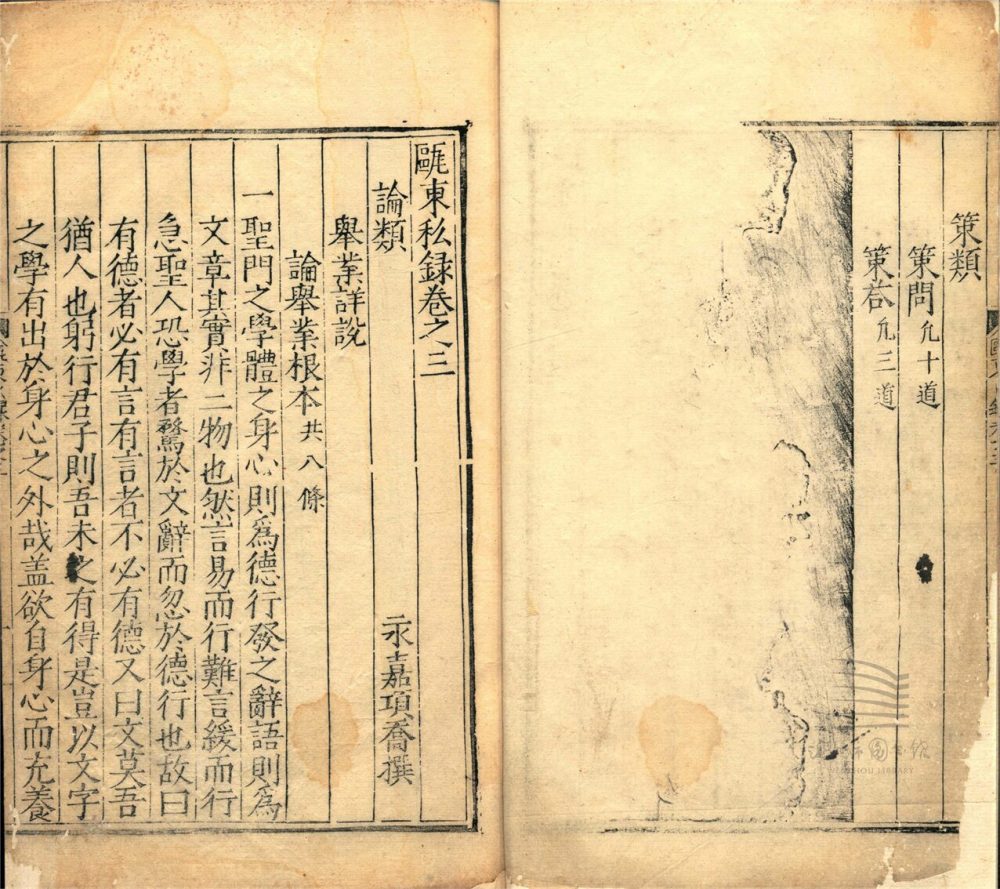 策類
策問 凢十道
策荅 凢三道
甌東私録卷之三
永嘉項喬撰
論類
舉業詳說
論舉業根本 共八條
一聖門之學體之身心則爲德行發之辭語則爲
文章其實非二物也然言易而行難言緩而行
急聖人恐學者騖於文辭而忽於德行也故曰
有德者必有言有言者不必有德又曰文莫吾
猶人也躬行君子則吾未之有得是豈以文字
之學有出於身心之外哉盖欲自身心而充養